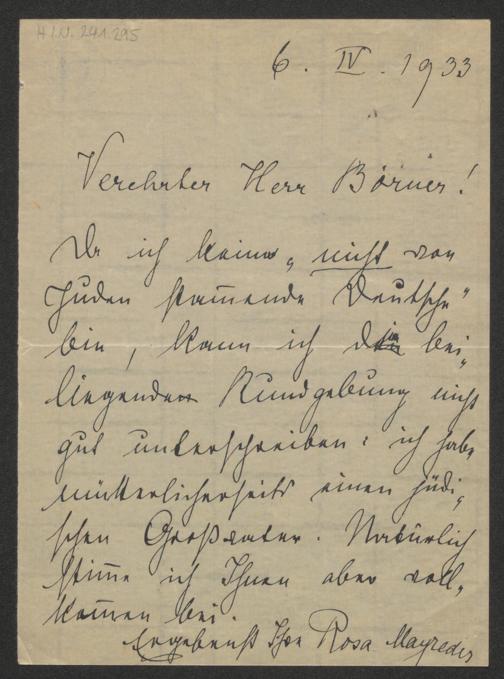 H.I.N. 241.295
6. IV. 1933
Verehrter Herr Börner!
Da ich keine „nicht von
Juden stammende Deutsche“
bin, kann ich die bei„
liegende Kundgebung nicht
gut unterschreiben: ich habe
mütterlicherseits einen jüdi„
schen Großvater. Natürlich
stimme ich Ihnen aber voll„
kommen bei.
Ergebenst Ihre Rosa Mayreder